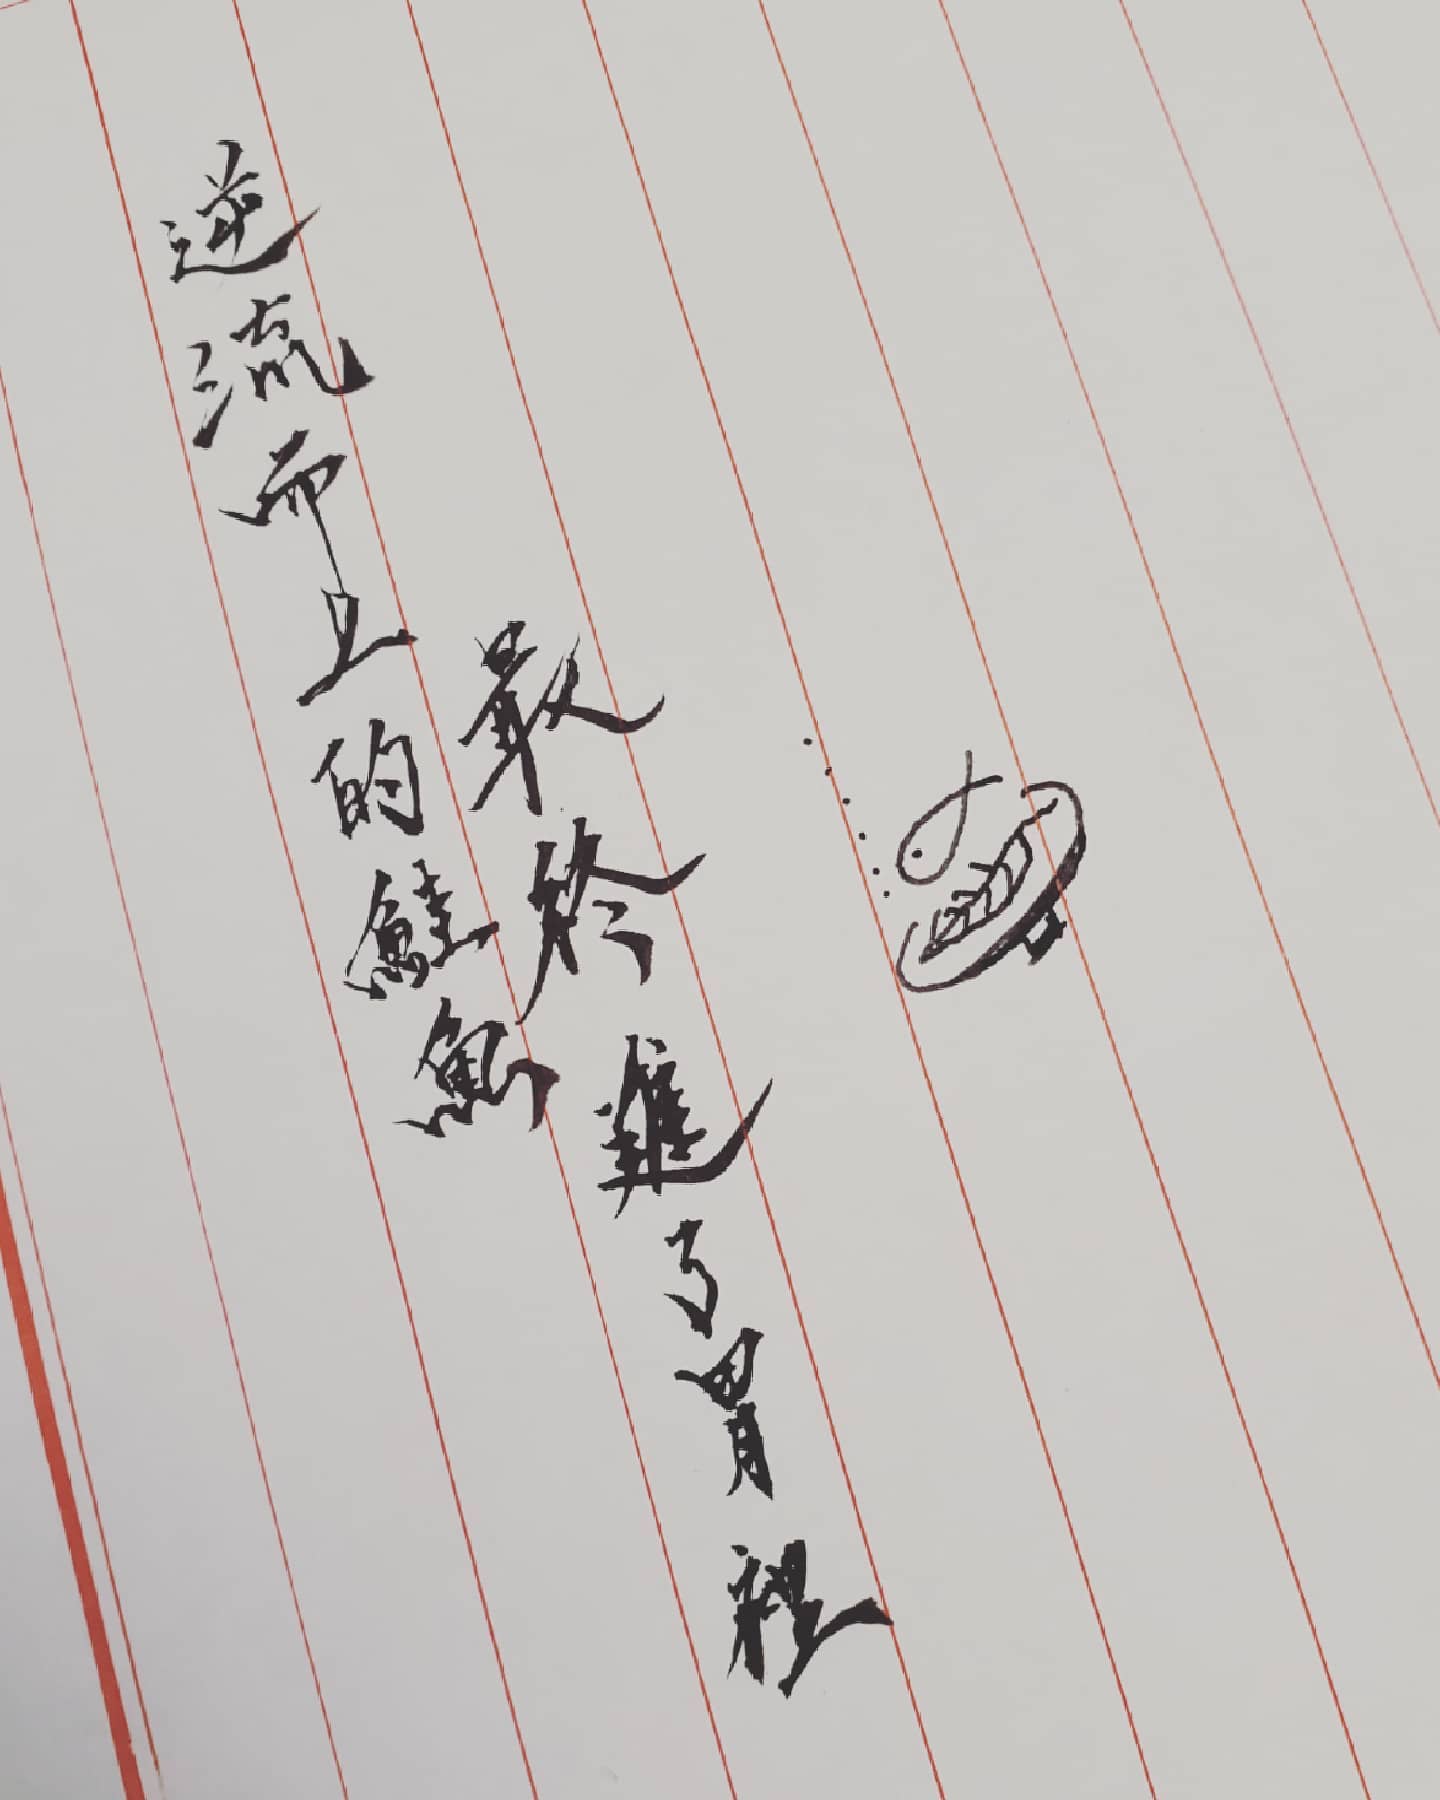 逆流而上的鮭魚
最終進了胃裡